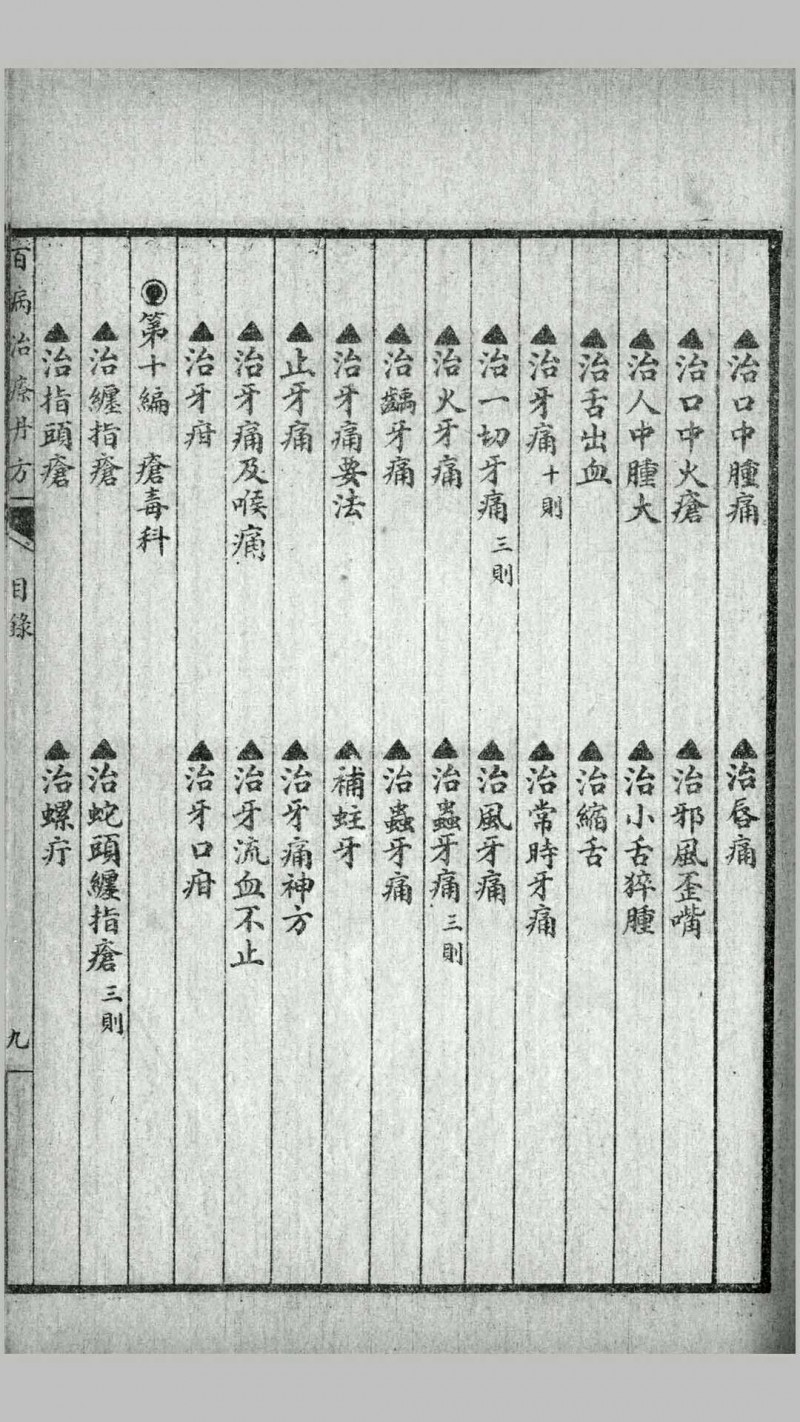 ▲治口中腫痛 ▲治唇痛
▲治口中火瘡 ▲治邪風歪嘴
▲治人中腫大 ▲治小舌猝腫
▲治舌出血 ▲治縮舌
▲治牙痛十則 ▲治常時牙痛
▲治一切牙痛三則 ▲治風牙痛
▲治火牙痛 ▲治蟲牙痛三則
▲治齲牙痛 ▲治蟲牙痛
▲治牙痛要法 ▲補蛀牙
▲止牙痛 ▲治牙痛神方
▲治牙痛及喉痛 ▲治牙流血不止
▲治牙疳 ▲治牙口疳
第十編 瘡毒科
▲治纏指瘡 ▲治蛇頭纏指瘡三則
▲治指頭瘡 ▲治螺疔
百病治療丹方 目錄 九